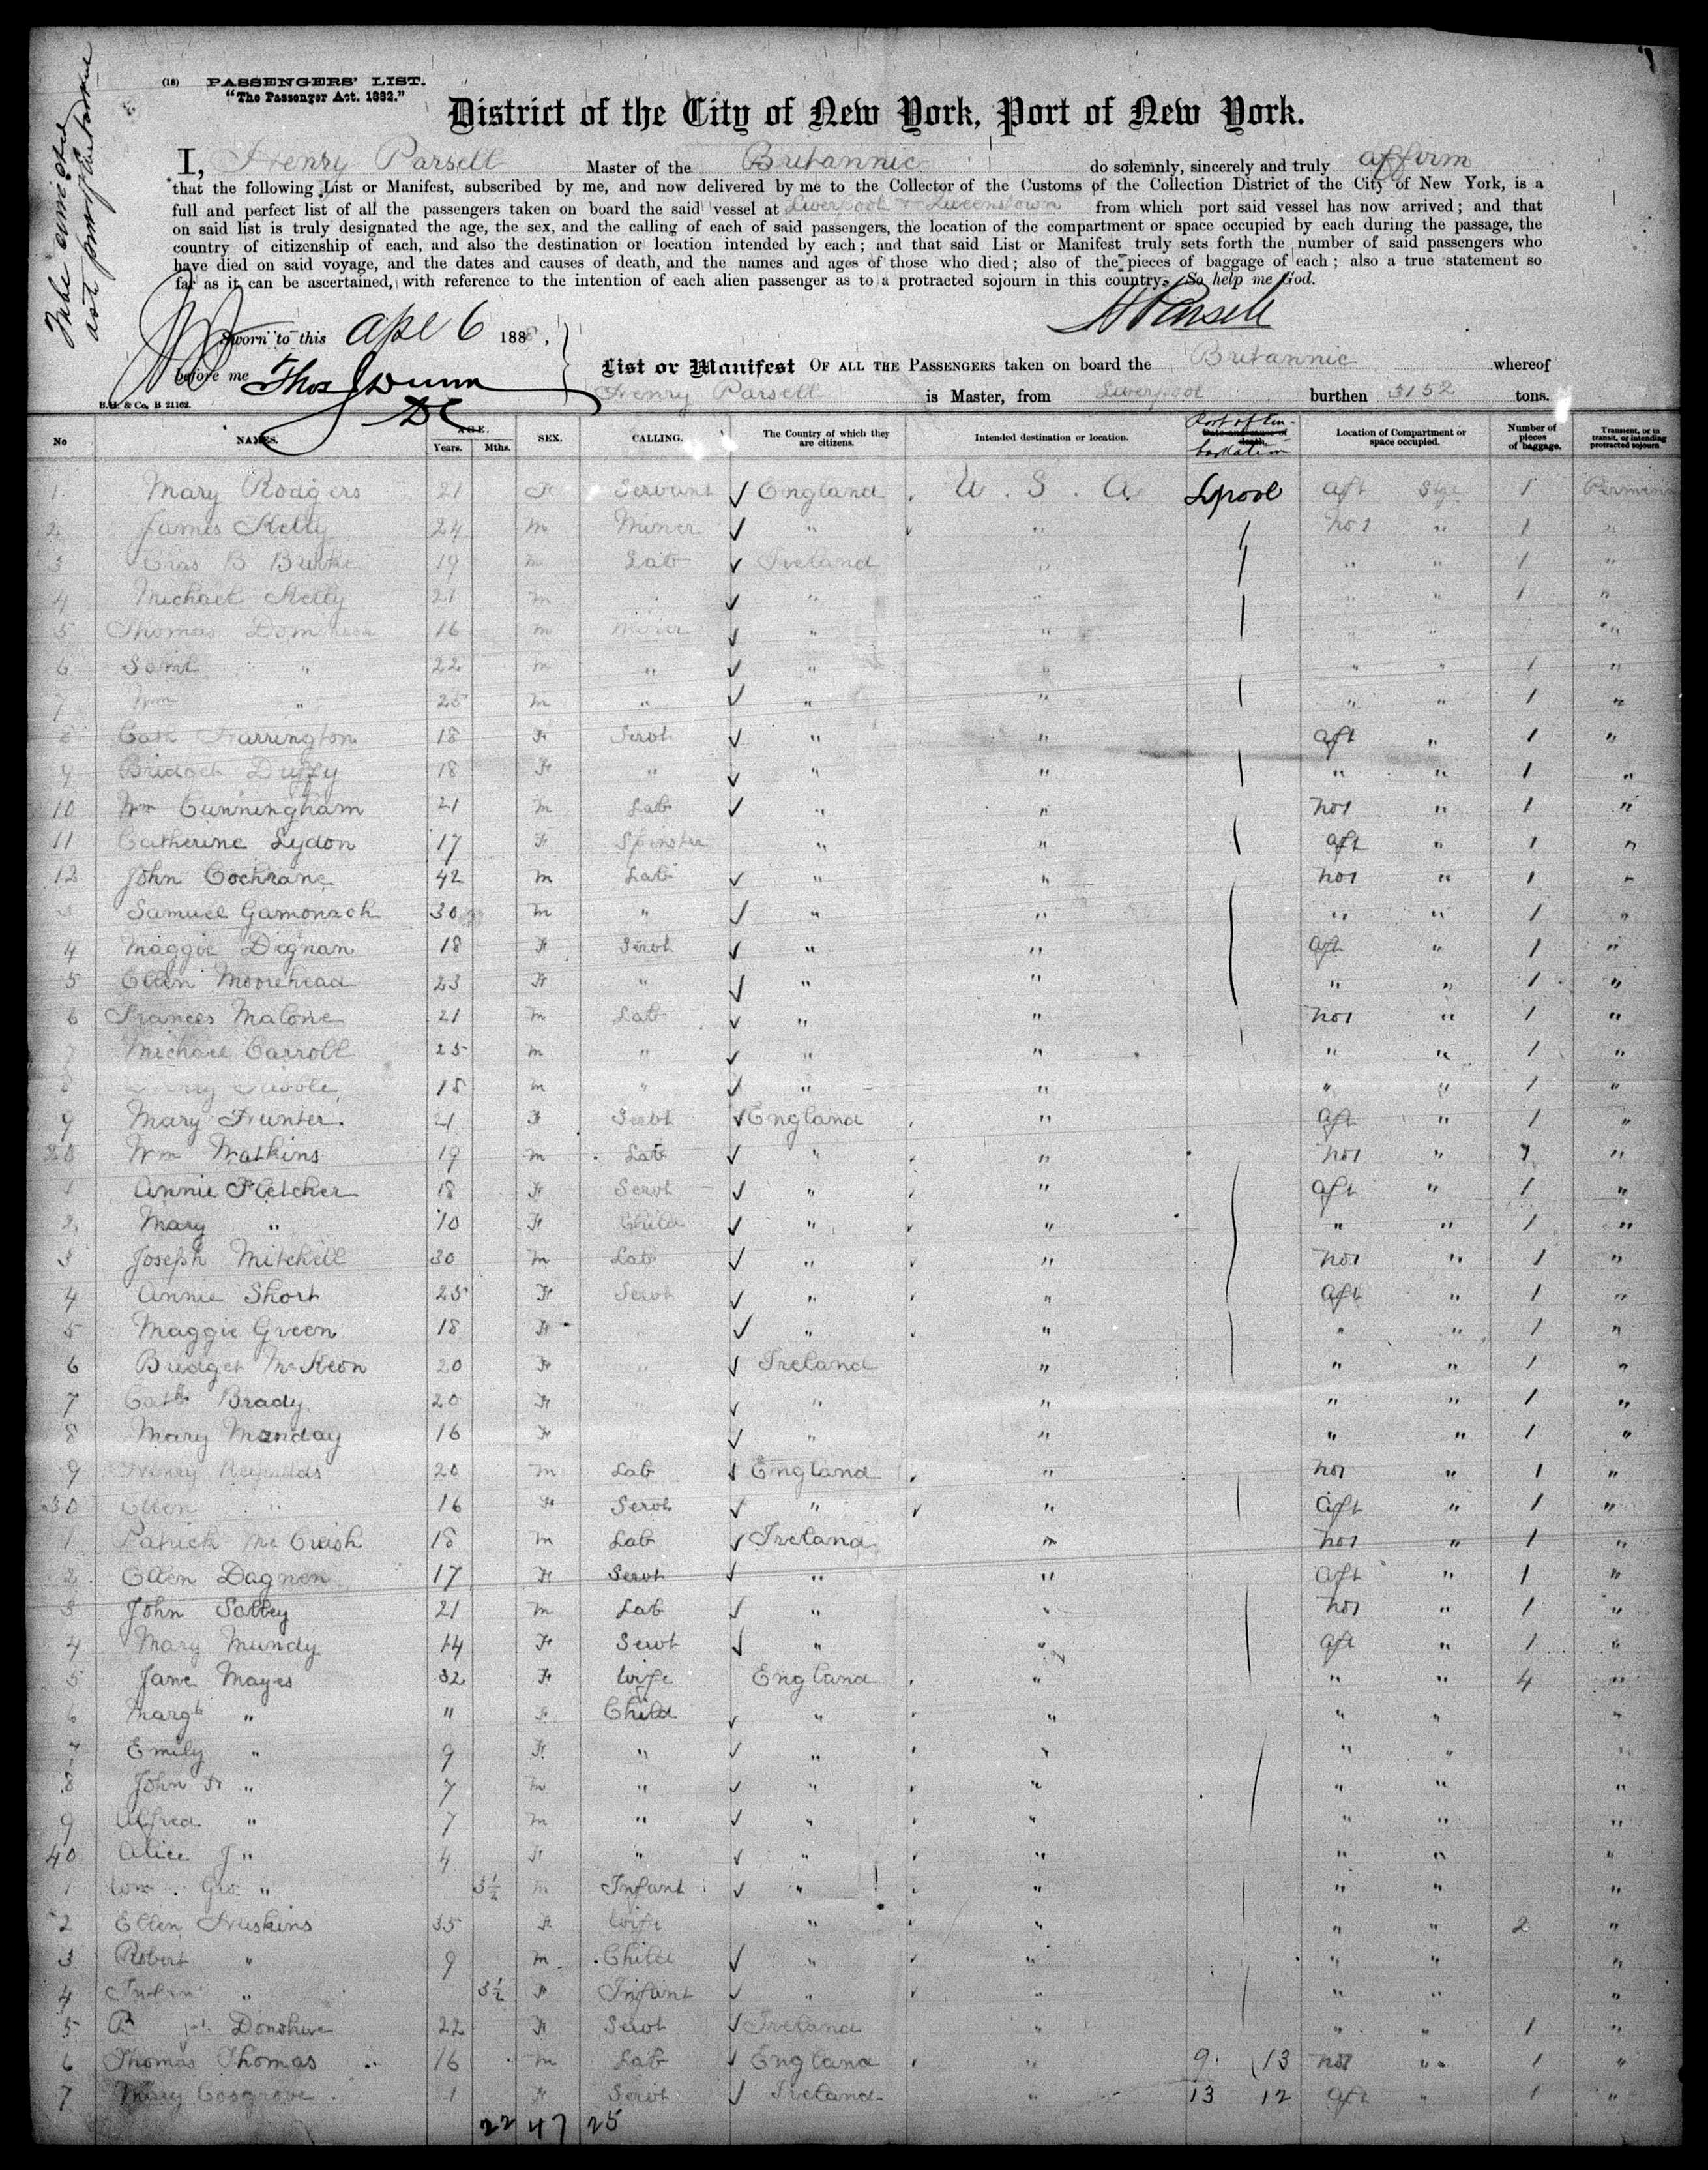 (18) PASSENGERS' LIST.
"The Passenger Act. 1882."
To be
District of the City of New York, Port of New York.
I, Henry Parsell Master of the Britannic do solemnly, sincerely and truly affirm
that the following List or Manifest, subscribed by me, and now delivered by me to the Collector of the Customs of the Collection District of the City of New York, is a
full and perfect list of all the passengers taken on board the said vessel at Liverpool & Queenstown from which port said vessel has now arrived; and that
on said list is truly designated the age, the sex, and the calling of each of said passengers, the location of the compartment or space occupied by each during the passage, the
country of citizenship of each, and also the destination or location intended by each; and that said List or Manifest truly sets forth the number of said passengers who
have died on said voyage, and the dates and causes of death, and the names and ages of those who died; also of the pieces of baggage of each; also a true statement so
far as it can be ascertained, with reference to the intention of each alien passenger as to a protracted sojourn in this country. So help me God.
H Parsell
Sworn to this Apl 6 188 ,
before me Thos J Dunn
DC
B.H. & Co. B 21162.
List or Manifest OF ALL THE PASSENGERS taken on board the Britannic whereof
Henry Parsell is Master, from Liverpool burthen 3152 tons.
No NAMES. AGE. Years. Mths. SEX. CALLING. The Country of which they are citizens. Intended destination or location. Date and cause of death. Port of Embarkation Location of Compartment or space occupied. Number of pieces of baggage. Transient, or in transit, or intending protracted sojourn
1 Mary Rodgers 21 F Servant ✓ England U. S. A. Lpool aft Stge 1
2 James Kelly 24 m Miner ✓ " " no1 " 1 "
3 Chas B Burke 19 m Lab ✓ Ireland " " " 1 "
4 Michael Kelly 21 m " ✓ " " " " 1 "
5 Thomas 16 m ✓ " " " " "
6 Saml " 22 m " ✓ " " " " 1 "
7 Wm " 25 m " ✓ " " " " 1 "
8 Cath Harrington 18 F Servt ✓ " " aft " 1 "
9 Bridget Duffy 18 F " ✓ " " " " 1 "
10 Wm Cunningham 21 m Lab ✓ " " no1 " 1 "
11 Catherine Lydon 17 F Spinster " " aft " 1 "
12 John Cochrane 42 m Lab ✓ " " no1 " 1 "
3 Samuel Gamonach 30 m " ✓ " " " " 1 "
4 Maggie Dignan 18 F Servt ✓ " " aft " 1 "
5 Ellen Moorehead 23 F " ✓ " " " " 1 "
6 Frances Malone 21 m Lab ✓ " " no1 " 1 "
7 Michael Carroll 25 m " ✓ " " " " 1 "
8 18 m " ✓ " " " " 1 "
9 Mary Hunter 21 F Servt ✓ England " aft " 1 "
20 Wm Watkins 19 m Lab ✓ " " no1 " 1 "
1 Annie Fletcher 18 F Servt ✓ " " aft " 1 "
2 Mary " 10 F Child ✓ " " " " 1 "
3 Joseph Mitchell 30 m Lab ✓ " " no1 " 1 "
4 Annie Short 25 F Servt ✓ " " aft " 1 "
5 Maggie Green 18 F " ✓ " " " " 1 "
6 Bridget McKeon 20 F " ✓ Ireland " " " 1 "
7 Cath Brady 20 F " ✓ " " " " 1 "
8 Mary Munday 16 F ✓ " " " " 1 "
9 Henry Reynolds 20 m Lab ✓ England " no1 " 1 "
30 Ellen " 16 F Servt ✓ " " aft " 1 "
1 Patrick 18 m Lab ✓ Ireland " no1 " 1 "
2 Ellen Dagnen 17 F Servt ✓ " " aft " 1 "
3 John 21 m Lab ✓ " " no1 " 1 "
4 Mary Mundy 14 F Servt ✓ " " aft " 1 "
5 Jane Mayes 32 F Wife England " " " 4 "
6 Margt " 11 F Child ✓ " " " " "
7 Emily " 9 F " ✓ " " " " "
8 John F " 7 m " ✓ " " " " "
9 Alfred " 7 m " ✓ " " " " "
40 Alice J " 4 F " ✓ " " " " "
1 Wm Geo " 3½ m Infant ✓ " " " " "
2 Ellen Huskins 35 F Wife " " " " 2 "
3 Robert " 9 m Child ✓ " " " " "
4 Infant " 3½ F Infant ✓ " " " " "
5 Donohue 22 F Servt ✓ Ireland " " " 1 "
6 Thomas Thomas 16 m Lab ✓ England " 9 13 no1 " 1 "
7 Mary Cosgrove F Servt ✓ Ireland " 13 12 aft " 1 "
22 47 25